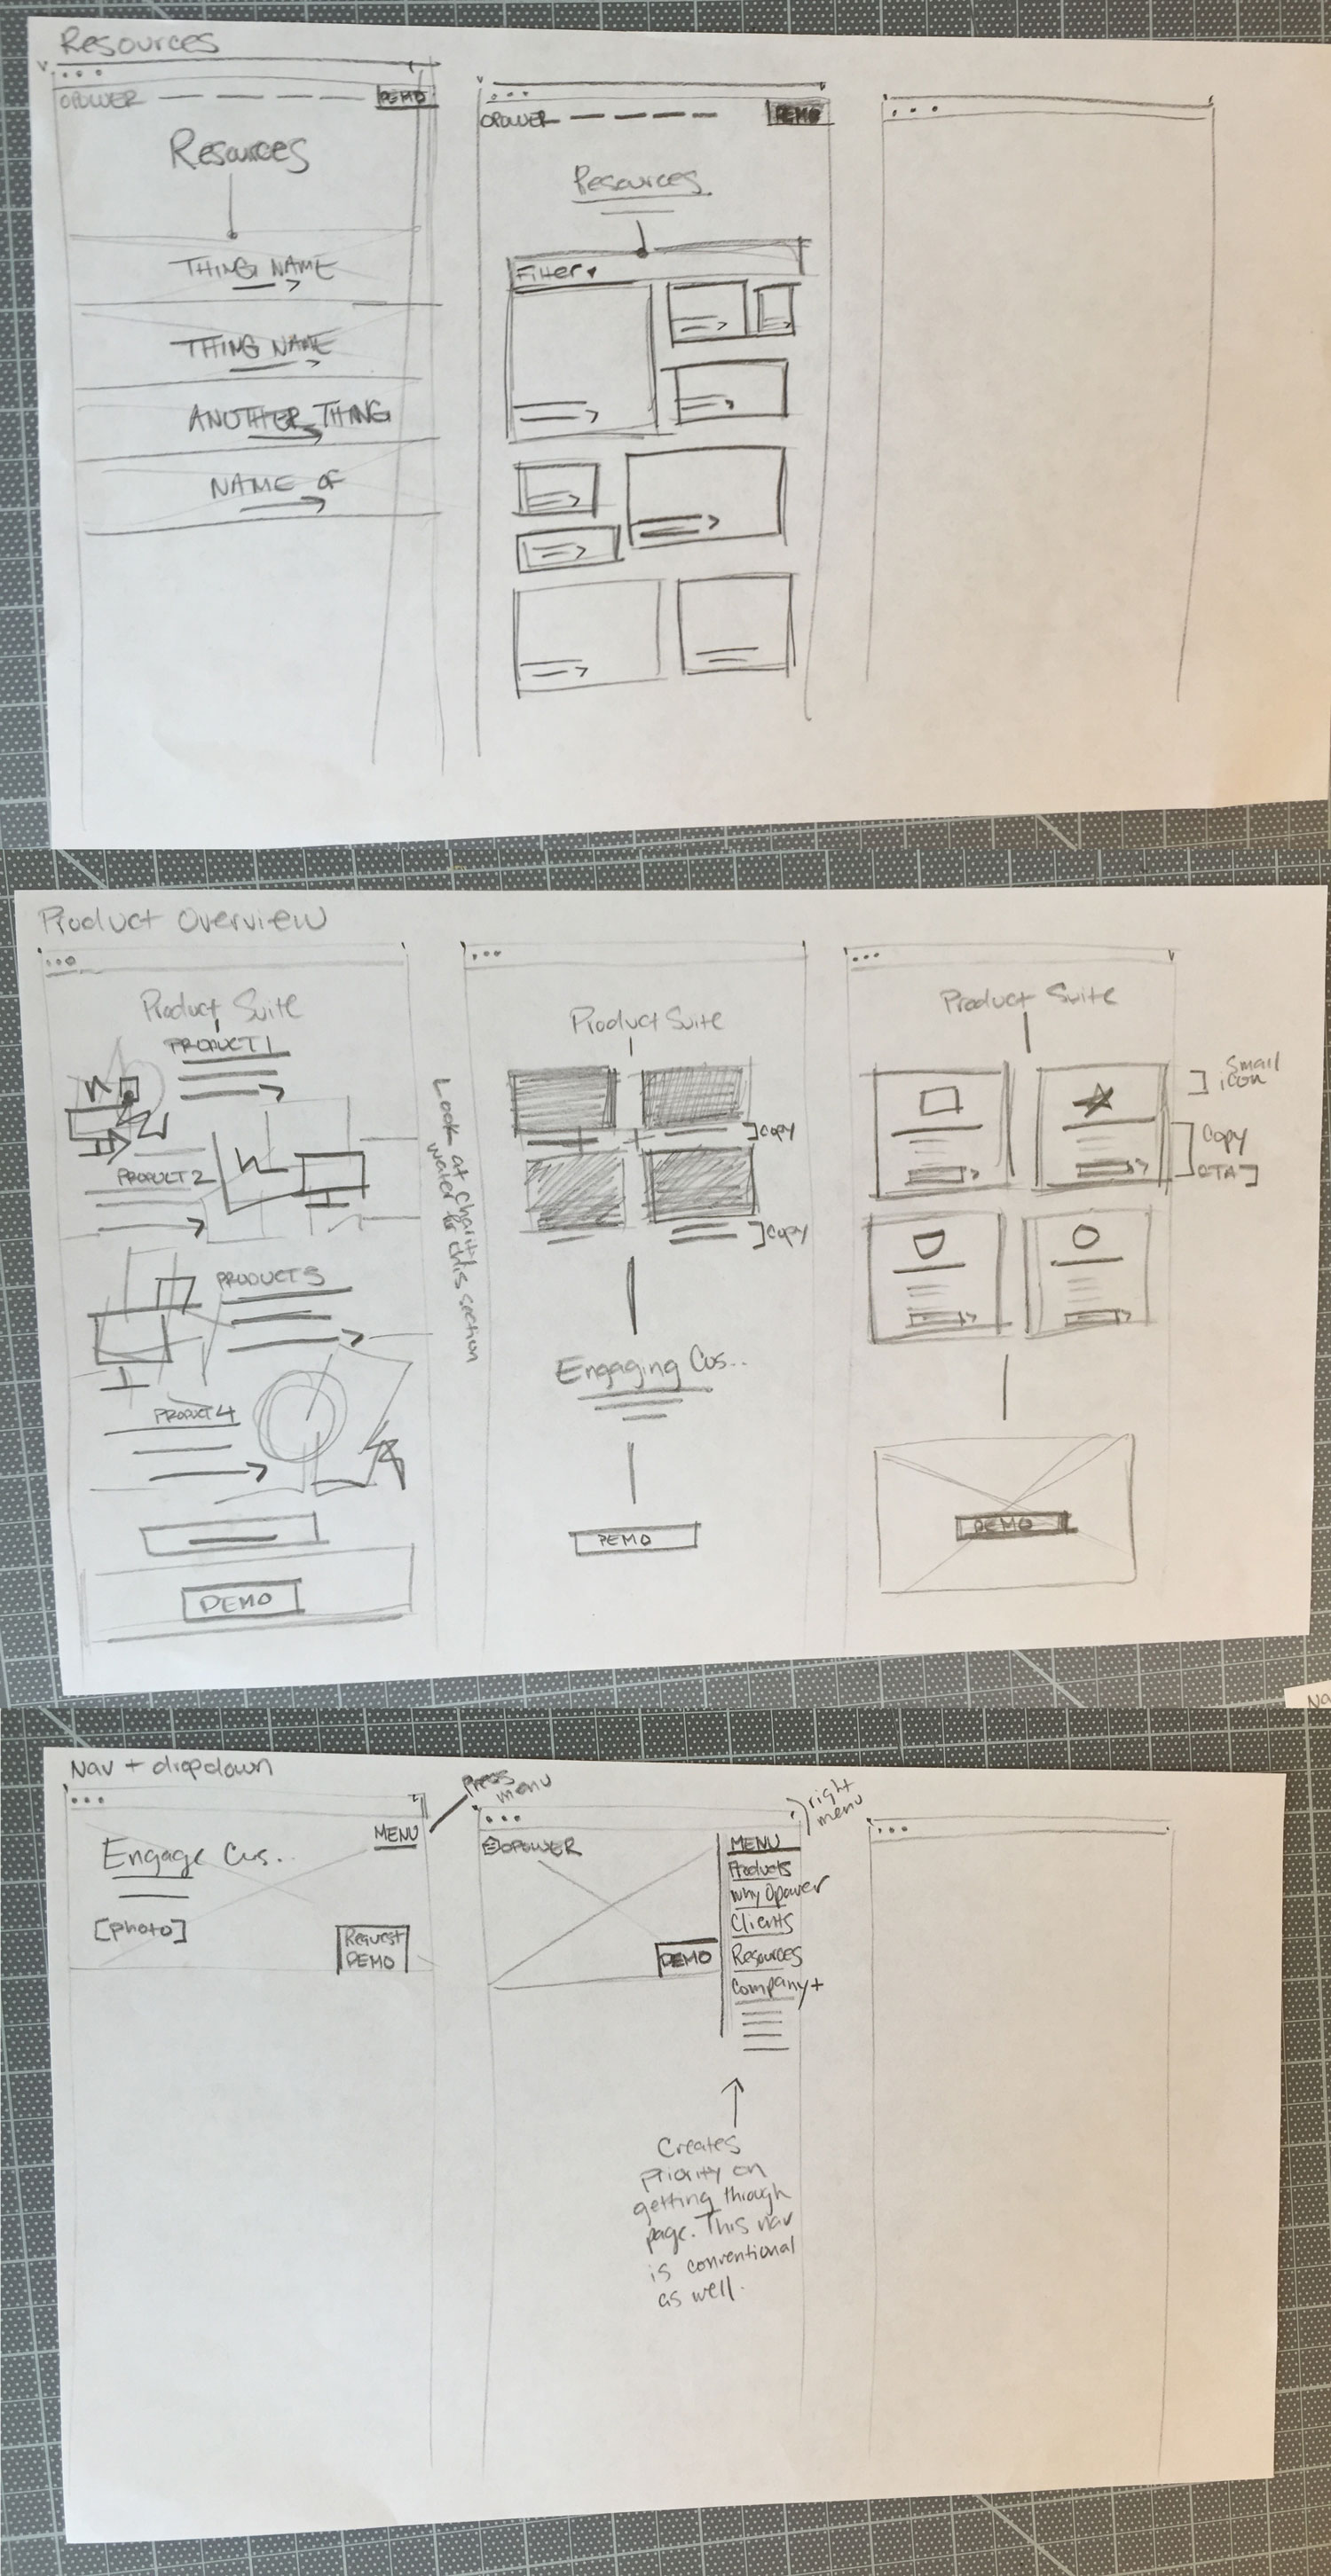 Resources
OPOWER
DEMO
Resources
THING NAME
THING NAME
ANOTHER THING
NAME OF
OPOWER
DEMO
Resources
Filter
Product Overview
Product Suite
PRODUCT 1
PRODUCT 2
PRODUCT 3
PRODUCT 4
DEMO
Look at charity
water for this section
Product Suite
copy
copy
Engaging Cus..
DEMO
Product Suite
Small
icon
Copy
CTA
DEMO
Na
Nav + dropdown
Press
menu
MENU
Engage Cus..
[photo]
Request
DEMO
right
menu
OPOWER
DEMO
MENU
Products
Why Opower
Clients
Resources
Company+
Creates
priority on
getting through
page. This nav
is conventional
as well.